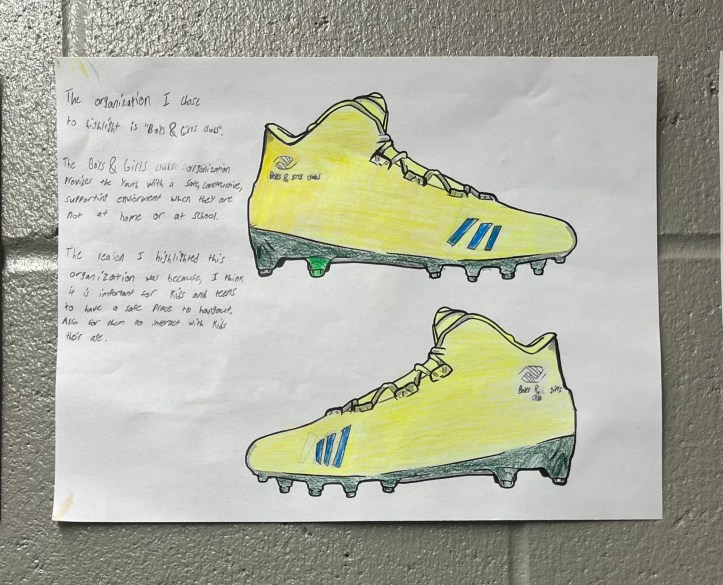 The organization I chose
to highlight is "Boys & Girls clubs".
The Boys & Girls clubs organization
Provides the Youth with a safe, constructive,
supportive enviorment when they are
not at home or at school.
The reason I highlighted this
organization was because, I think
it is important for Kids and teens
to have a safe Place to hangout.
Also for them to interact with Kids
their age.
Boys & Girls clubs
Boys & girls
club